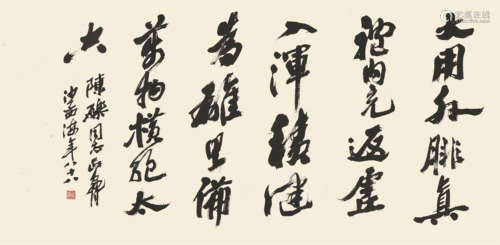 大用外腓真
體内充返虛
入渾積健
為雄具備
萬物橫絕太
空
陳 同志正
沙孟海年八十